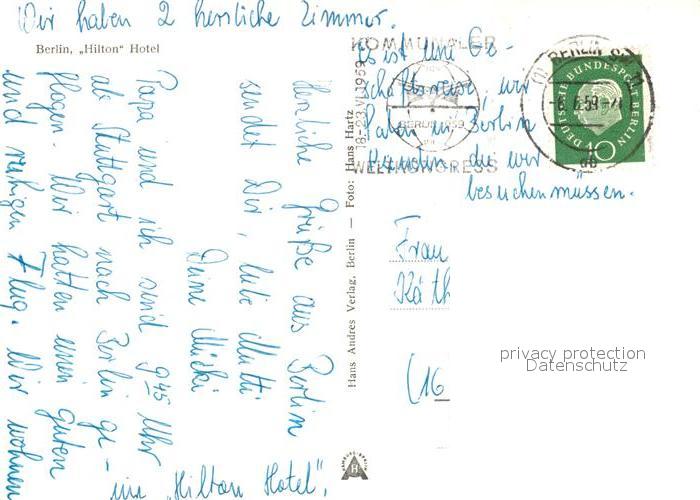 Wir haben 2 herrliche Zimmer.
Berlin, „Hilton" Hotel
Herzliche Grüße aus Berlin
sendet Dir, liebe Mutti
Deine Mücki
Papa und ich sind 9⁴⁵ Uhr
ab Stuttgart nach Berlin ge-
flogen. Wir hatten einen guten
und ruhigen Flug. Wir wohnen
im „Hilton Hotel",
es ist eine Ge-
schäftsreise, wir
haben in Berlin
Kunden die wir
besuchen müssen.
Frau
Käth
(16
Hans Andres Verlag, Berlin — Foto: Hans Hartz
KOMMUNALER
WELTKONGRESS
18.-23.VI.1959
BERLIN 1959
BERLIN SW
-6.6.59
DEUTSCHE BUNDESPOST BERLIN
10
HAMBURG-BERLIN
H
privacy protection
Datenschutz